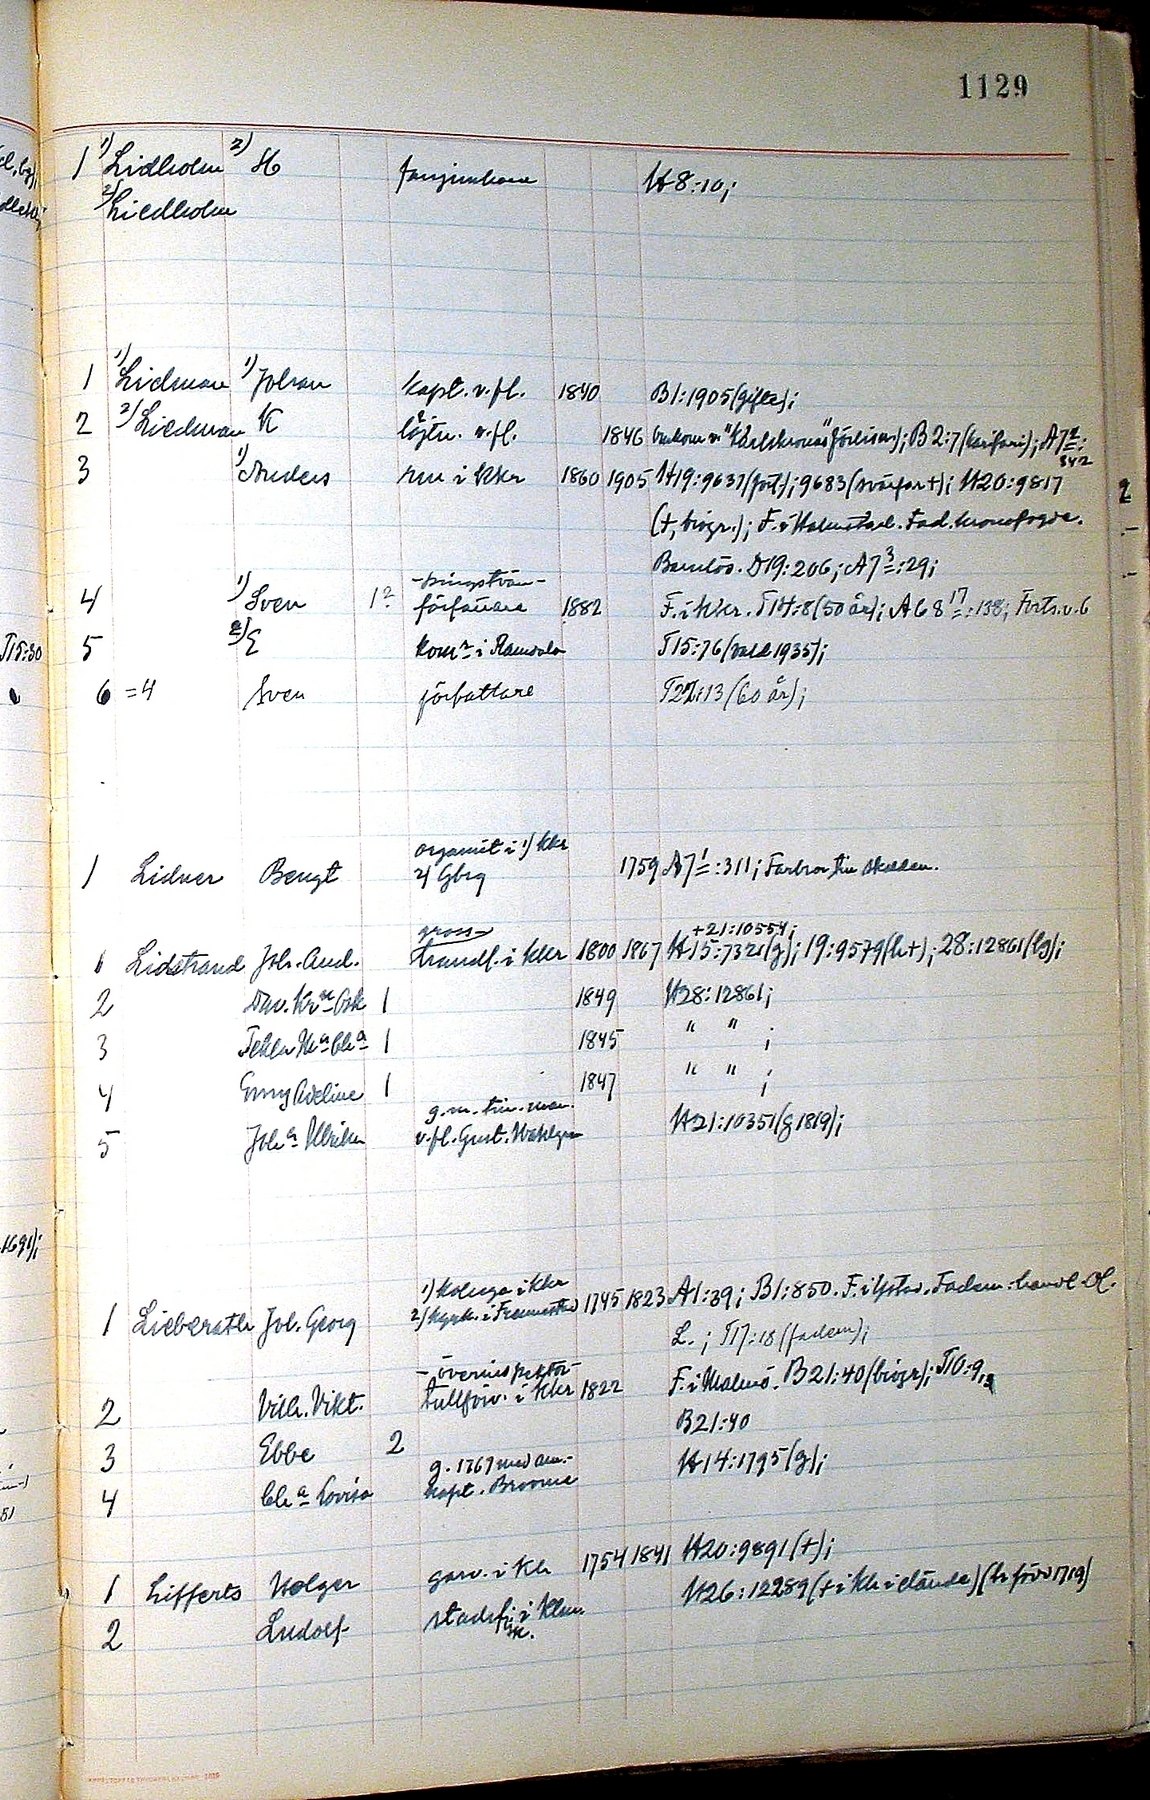 1129
1 1) Lidholm 2) H fanjunkare H8:10;
2) Liedholm
1 1) Lidman 1) Johan kapt. v. fl. 1840 B1:1905 (gifte);
2 2) Liedman K löjtn. v. fl. 1846 omkom v. "Karlskronas" förlisn); B2:7 (kaifari); A7 2:
342
3 1) Anders rm i Kkr 1860 1905 H19:9637 (port); 9683 (svärfar +); H20:9817
(+, biogr.); F. i Halmstad. Fad. kronofogde.
Barnlös. D19:206; A7 3:29;
- pingstvän -
4 1) Sven 1 2 författare 1882 F. i Kkr. T14:8 (50 år); A68 17:138; Forts. v. 6
5 2) E kom r i Ramdala T15:76 (vald 1935);
6 =4 Sven författare T22:13 (60 år);
organist i 1) Kkr
1 Lidner Bengt 2) Gbrg 1759 A7 1:311; Farbror till skalden.
gross- +21:10554;
1 Lidstrand Joh. And. handl. i Kkr 1800 1867 H15:7321 (g); 19:9579 (h+); 28:12861 (lg);
2 Dav. Kr n Osk 1 1849 H28:12861;
3 Tekla M a Ch a 1 1845 " " ;
4 Emy Adeline 1 1847 " " ;
g. m. tim. man.
5 Joh a Ulrika v. fl. Gust. Wahlgren H21:10351 (g 1819);
1) kollega i Kkr
1 Lieberath Joh. Georg 2) kyrk. i 1745 1823 A1:39; B1:850. F. i Ystad. Fadern: handl Ol.
L.; T17:18 (fadern);
- överinspektor -
2 Vilh. Vikt. tullförv. i Kkr 1822 F. i Malmö. B21:40 (biogr); T10:9,13
3 Ebbe 2 B21:40
g. 1767 med am.-
4 Ch a Lovisa kapt. Broome H14:1795 (g);
1 Lifferts Holger garv. i Kh 1754 1841 H20:9891 (+);
2 Ludolf stadsfisk. i Khn H26:12289 (+ i Kh i elände) (h förv 1719)
T15:30
1691);